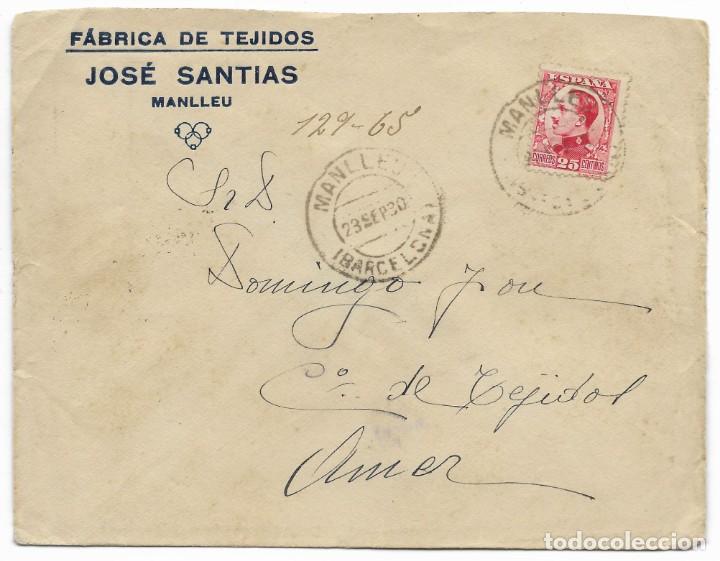 FÁBRICA DE TEJIDOS
JOSÉ SANTIAS
MANLLEU
129-65
ESPAÑA
CORREOS 25 CENTIMOS
MANLLEU
MANLLEU
23 SEP 30
(BARCELONA)
Sr D
Domingo
Co. de Tejidos
Amer
todocoleccion.net